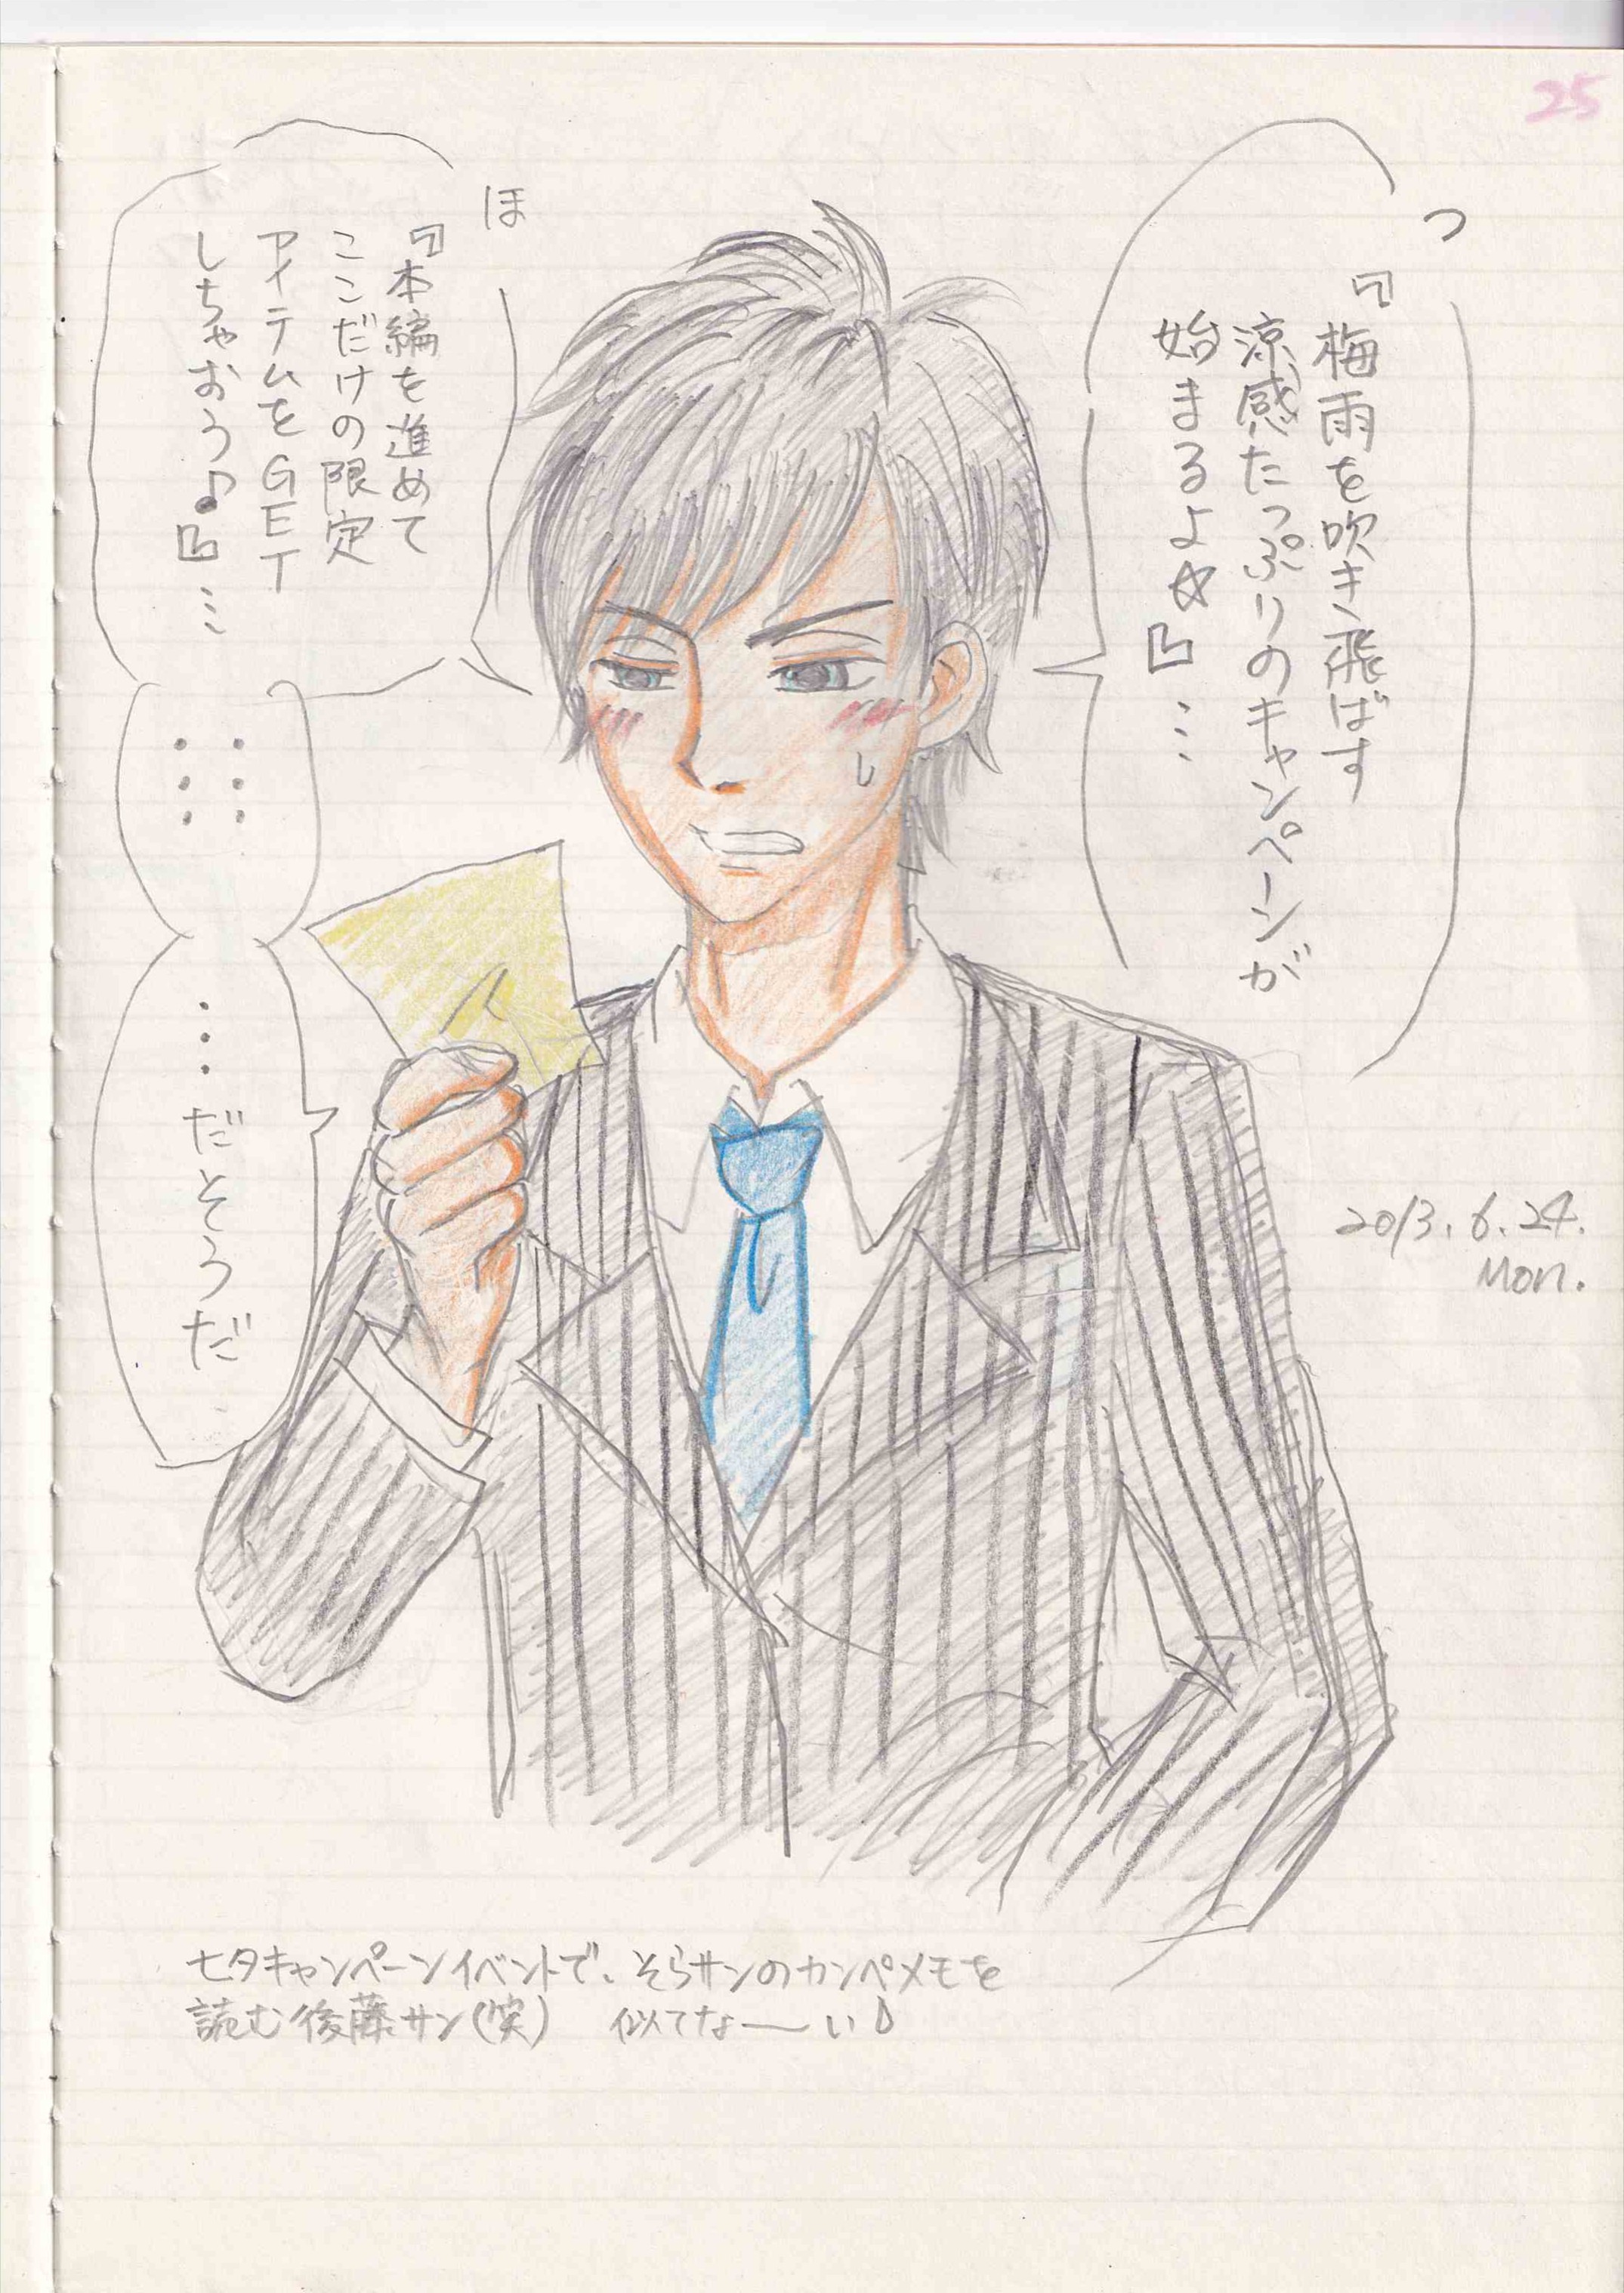 25
つ
『梅雨を吹き飛ばす
涼感たっぷりのキャンペーンが
始まるよ☆』…
ほ
『本編を進めて
ここだけの限定
アイテムをGET
しちゃおう♪』…
……
…だそうだ
2013.6.24.
Mon.
七夕キャンペーンイベントで、そらサンのカンペメモを
読む後藤サン(笑) 似てなーい♪